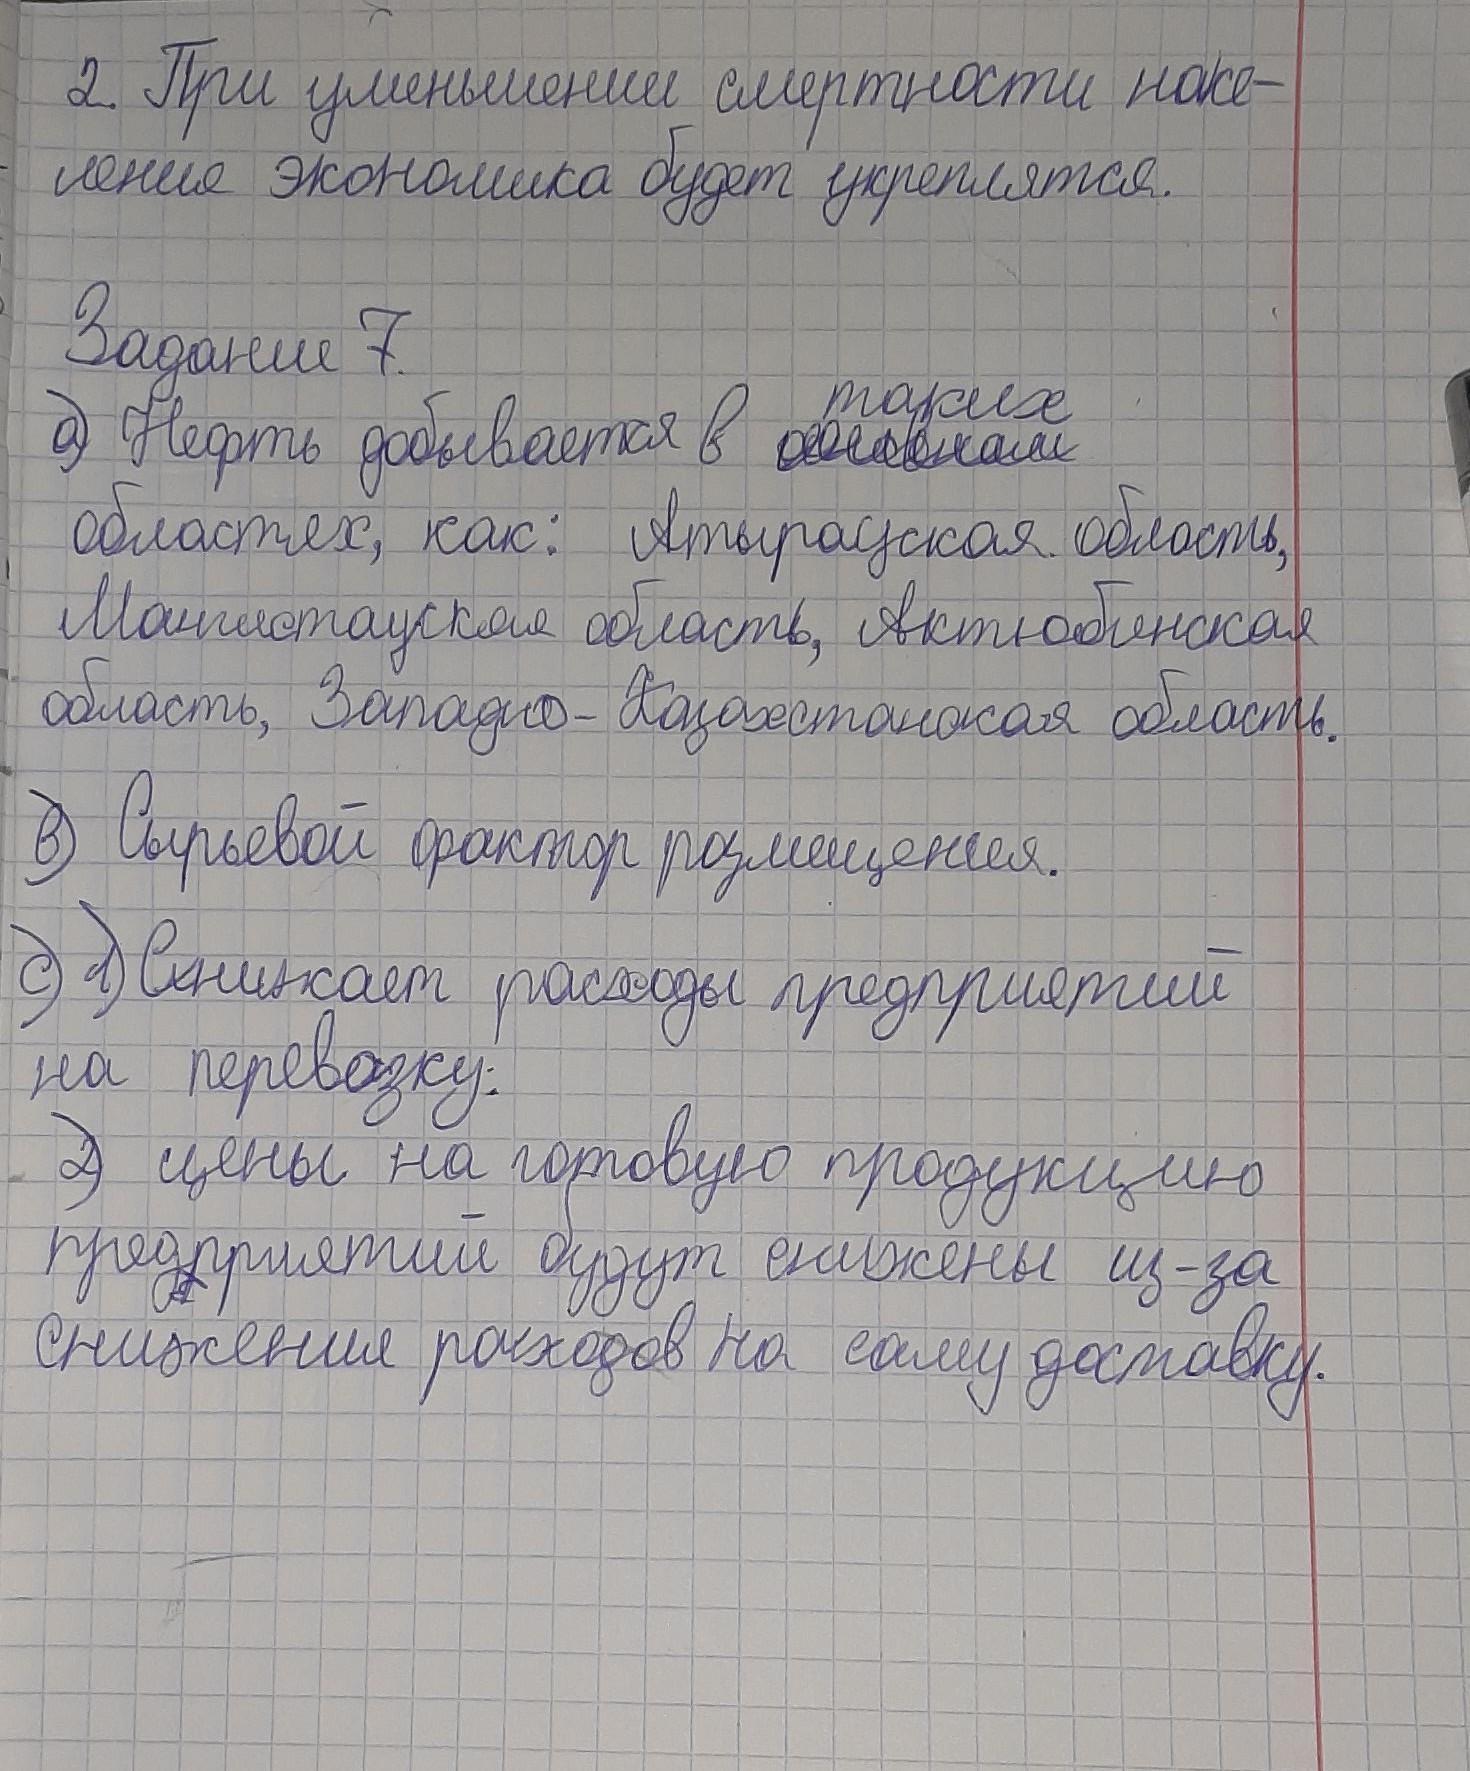 2. При уменьшении смертности насе-
ления экономика будет укреплятся.
Задание 7.
а) Нефть добывается в таких
областях, как: Атырауская область,
Мангистауская область, Актюбинская
область, Западно-Казахстанская область.
в) Сырьевой фактор размещения.
с) 1) Снижает расходы предприятий
на перевозку.
2) цены на готовую продукцию
предприятий будут снижены из-за
снижения расходов на саму доставку.